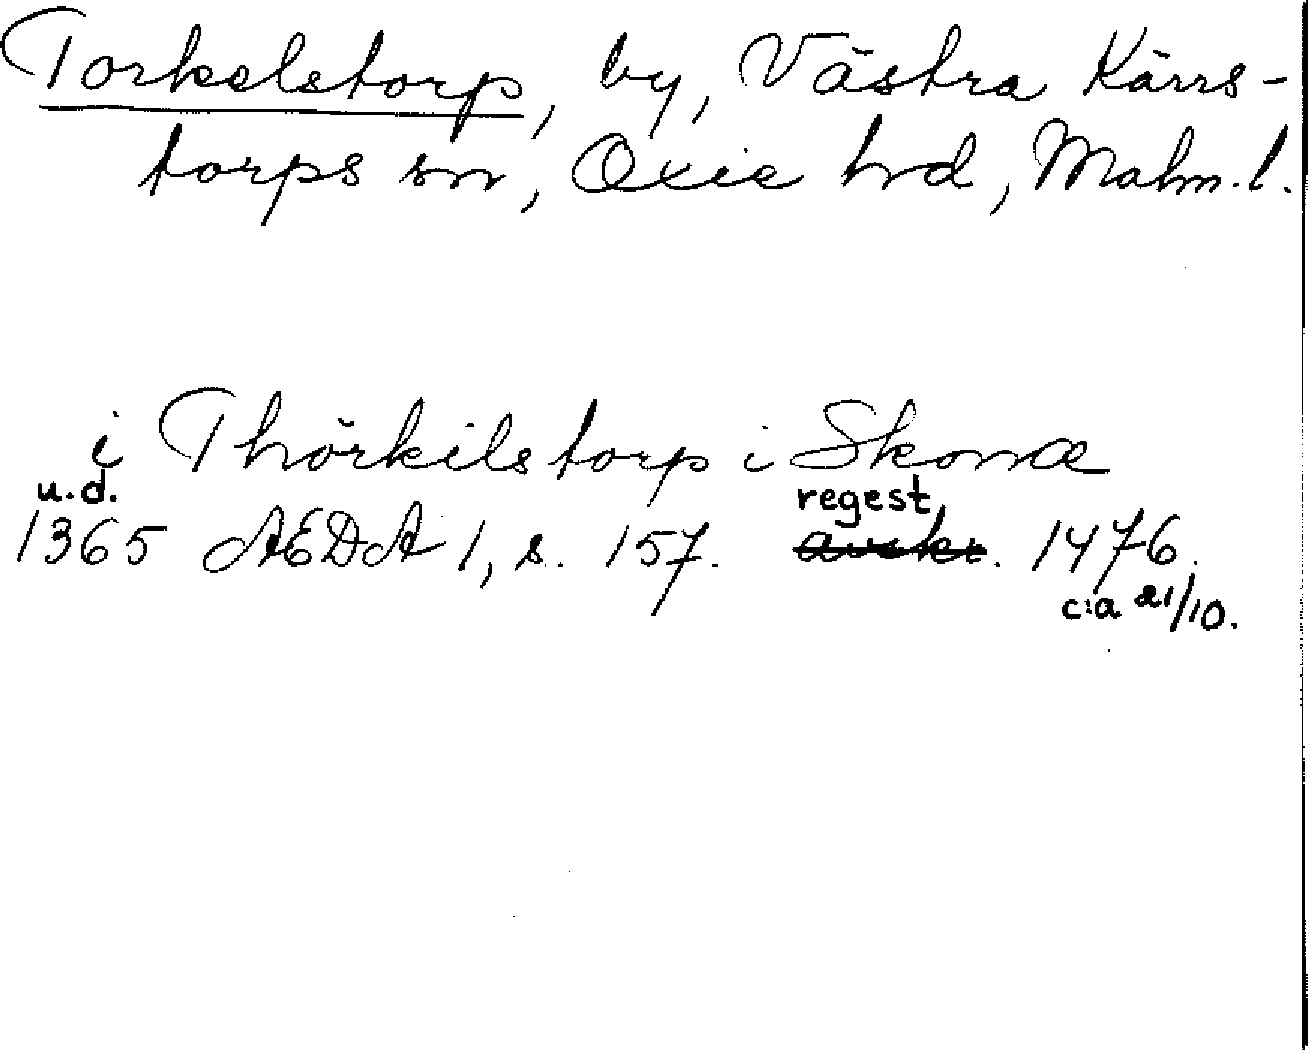 Torkelstorp, by, Västra Kärrs-
torps sn, Oxie hd, Malm.l.
i Thörkilstorp i Skonæ
u.d. regest
1365 ÆDA 1, s. 157. avskr. 1476.
c:a 21/10.